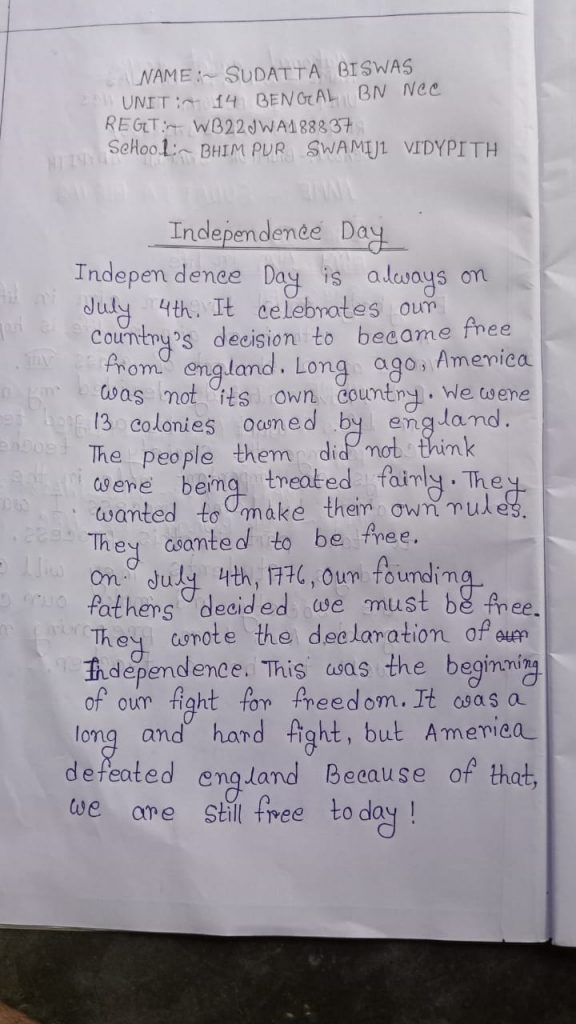 NAME:~ SUDATTA BISWAS
UNIT:~ 14 BENGAL BN NCC
REGT:~ WB22JWA188837
SCHOOL:~ BHIMPUR SWAMIJI VIDYPITH
Independence Day
Indepen dence Day is always on
July 4th. It celebrates our
country's decision to became free
from england. Long ago, America
was not its own country. We were
13 colonies owned by england.
The people them did not think
were being treated fairly. They
wanted to make their own rules.
They wanted to be free.
On July 4th, 1776, Our founding
fathers decided we must be free.
They wrote the declaration of our
Independence. This was the beginning
of our fight for freedom. It was a
long and hard fight, but America
defeated england Because of that,
we are still free today!